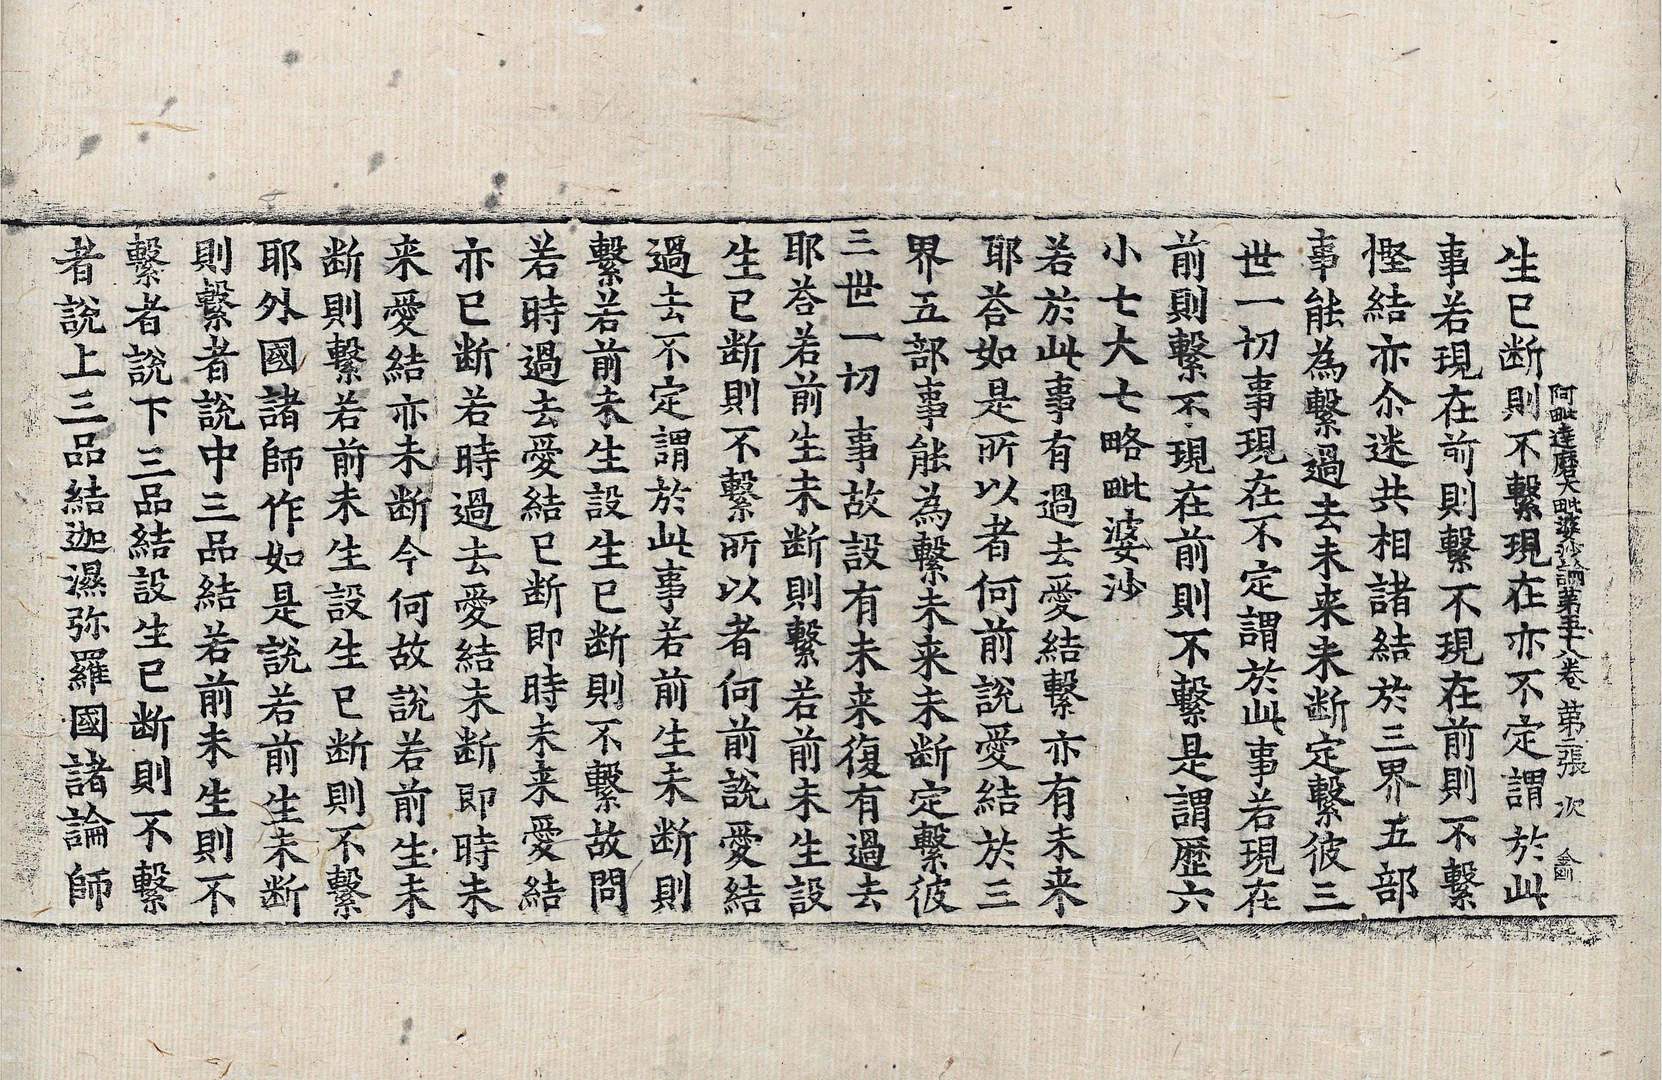 阿毗達磨大毗婆沙論第五十八卷 第二張 次
生已断則不繫現在亦不定謂於此
事若現在前則繫不現在前則不繫
慳結亦尒迷共相諸結於三界五部
事能為繫過去未来未断定繫彼三
世一切事現在不定謂於此事若現在
前則繫不現在前則不繫是謂歷六
小七大七略毗婆沙
若於此事有過去愛結繫亦有未来
耶荅如是所以者何前說愛結於三
界五部事能為繫未来未断定繫彼
三世一切事故設有未来復有過去
耶荅若前生未断則繫若前未生設
生已断則不繫所以者何前說愛結
過去不定謂於此事若前生未断則
繫若前未生設生已断則不繫故問
若時過去愛結已断即時未来愛結
亦已断若時過去愛結未断即時未
来愛結亦未断今何故說若前生未
断則繫若前未生設生已断則不繫
耶外國諸師作如是說若前生未断
則繫者說中三品結若前未生則不
繫者說下三品結設生已断則不繫
者說上三品結迦濕弥羅國諸論師